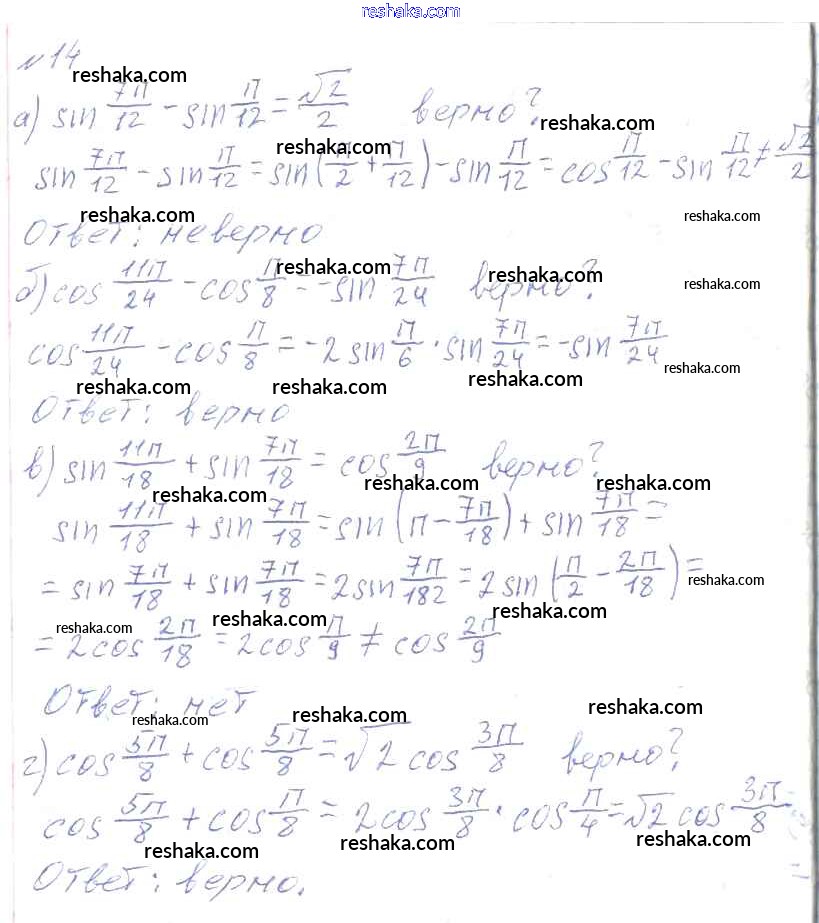 reshaka.com
№14
reshaka.com
а) sin 7π/12 - sin π/12 = √2/2 верно?
reshaka.com
reshaka.com
sin 7π/12 - sin π/12 = sin(π/2 + π/12) - sin π/12 = cos π/12 - sin π/12 ≠ √2/2
reshaka.com reshaka.com
Ответ: неверно
reshaka.com reshaka.com reshaka.com
б) cos 11π/24 - cos π/8 = -sin 7π/24 верно?
cos 11π/24 - cos π/8 = -2 sin π/6 · sin 7π/24 = -sin 7π/24
reshaka.com reshaka.com reshaka.com reshaka.com
Ответ: верно
в) sin 11π/18 + sin 7π/18 = cos 2π/9 верно?
reshaka.com reshaka.com reshaka.com
sin 11π/18 + sin 7π/18 = sin(π - 7π/18) + sin 7π/18 =
= sin 7π/18 + sin 7π/18 = 2sin 7π/182 = 2 sin(π/2 - 2π/18) =
reshaka.com
reshaka.com reshaka.com reshaka.com
= 2cos 2π/18 = 2cos π/9 ≠ cos 2π/9
Ответ: нет
reshaka.com reshaka.com reshaka.com
г) cos 5π/8 + cos 5π/8 = √2 cos 3π/8 верно?
cos 5π/8 + cos π/8 = 2cos 3π/8 · cos π/4 = √2 cos 3π/8
reshaka.com reshaka.com reshaka.com
Ответ: верно.